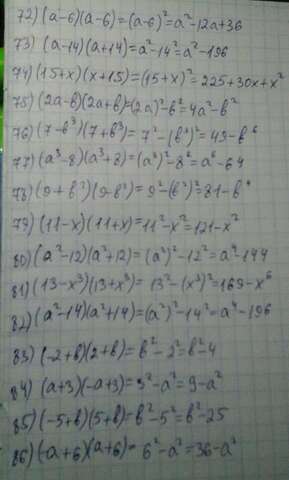 72) (a-6)(a-6)=(a-6)²=a²-12a+36
73) (a-14)(a+14)=a²-14²=a²-196
74) (15+x)(x+15)=(15+x)²=225+30x+x²
75) (2a-b)(2a+b)=(2a)²-b²=4a²-b²
76) (7-b³)(7+b³)=7²-(b³)²=49-b⁶
77) (a³-8)(a³+8)=(a³)²-8²=a⁶-64
78) (9+b²)(9-b²)=9²-(b²)²=81-b⁴
79) (11-x)(11+x)=11²-x²=121-x²
80) (a²-12)(a²+12)=(a²)²-12²=a⁴-144
81) (13-x³)(13+x³)=13²-(x³)²=169-x⁶
82) (a²-14)(a²+14)=(a²)²-14²=a⁴-196
83) (-2+b)(2+b)=b²-2²=b²-4
84) (a+3)(-a+3)=3²-a²=9-a²
85) (-5+b)(5+b)=b²-5²=b²-25
86) (-a+6)(a+6)=6²-a²=36-a²